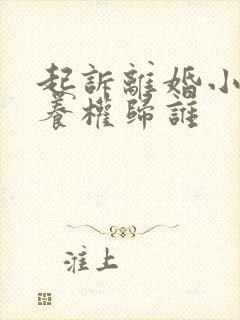 起訴離婚小
養權歸誰
淮上